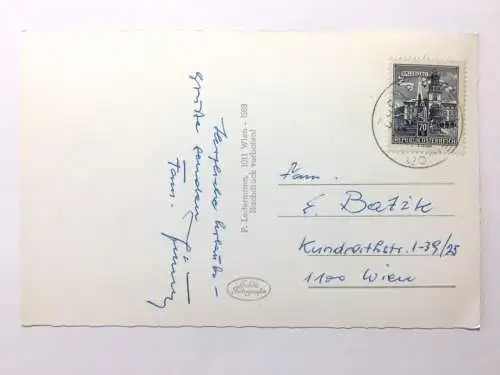 Herzliche Urlaubs-
grüße senden
Fam.
P. Ledermann, 1011 Wien - 1968
Nachdruck verboten!
Echte
Photografie
SALZBURG
70
REPUBLIK ÖSTERREICH
Fam.
E. Batik
Kundratstr. 1-39/25
1100 Wien